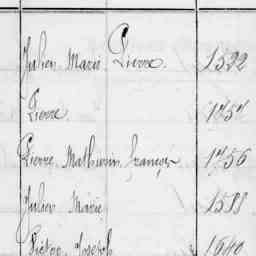 Julien Marie Pierre 1522
Pierre 1757
Pierre Mathurin françois 1756
Julien Marie 1588
Joseph 1640